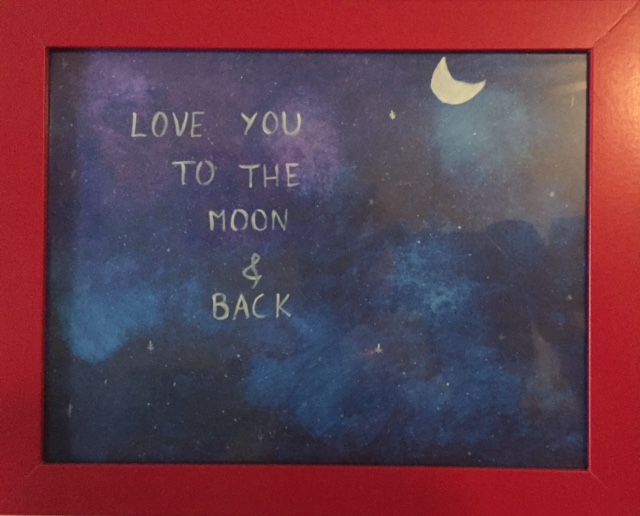 LOVE YOU
TO THE
MOON
&
BACK